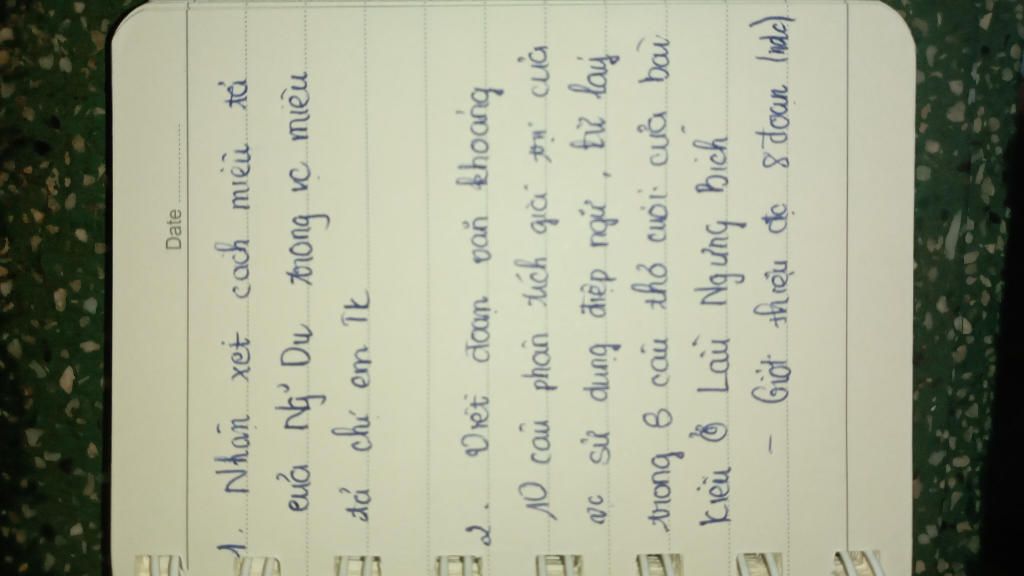 Date
1. Nhận xét cách miêu tả
của Ng~ Du trong vc miêu
tả chị em TK
2. Viết đoạn văn khoảng
10 câu phân tích giá trị của
vc sử dụng điệp ngữ, từ láy
trong 8 câu thơ cuối của bài
Kiều ở Lầu Ngưng Bích
- Giới thiệu đc 8 đoạn (ndc)